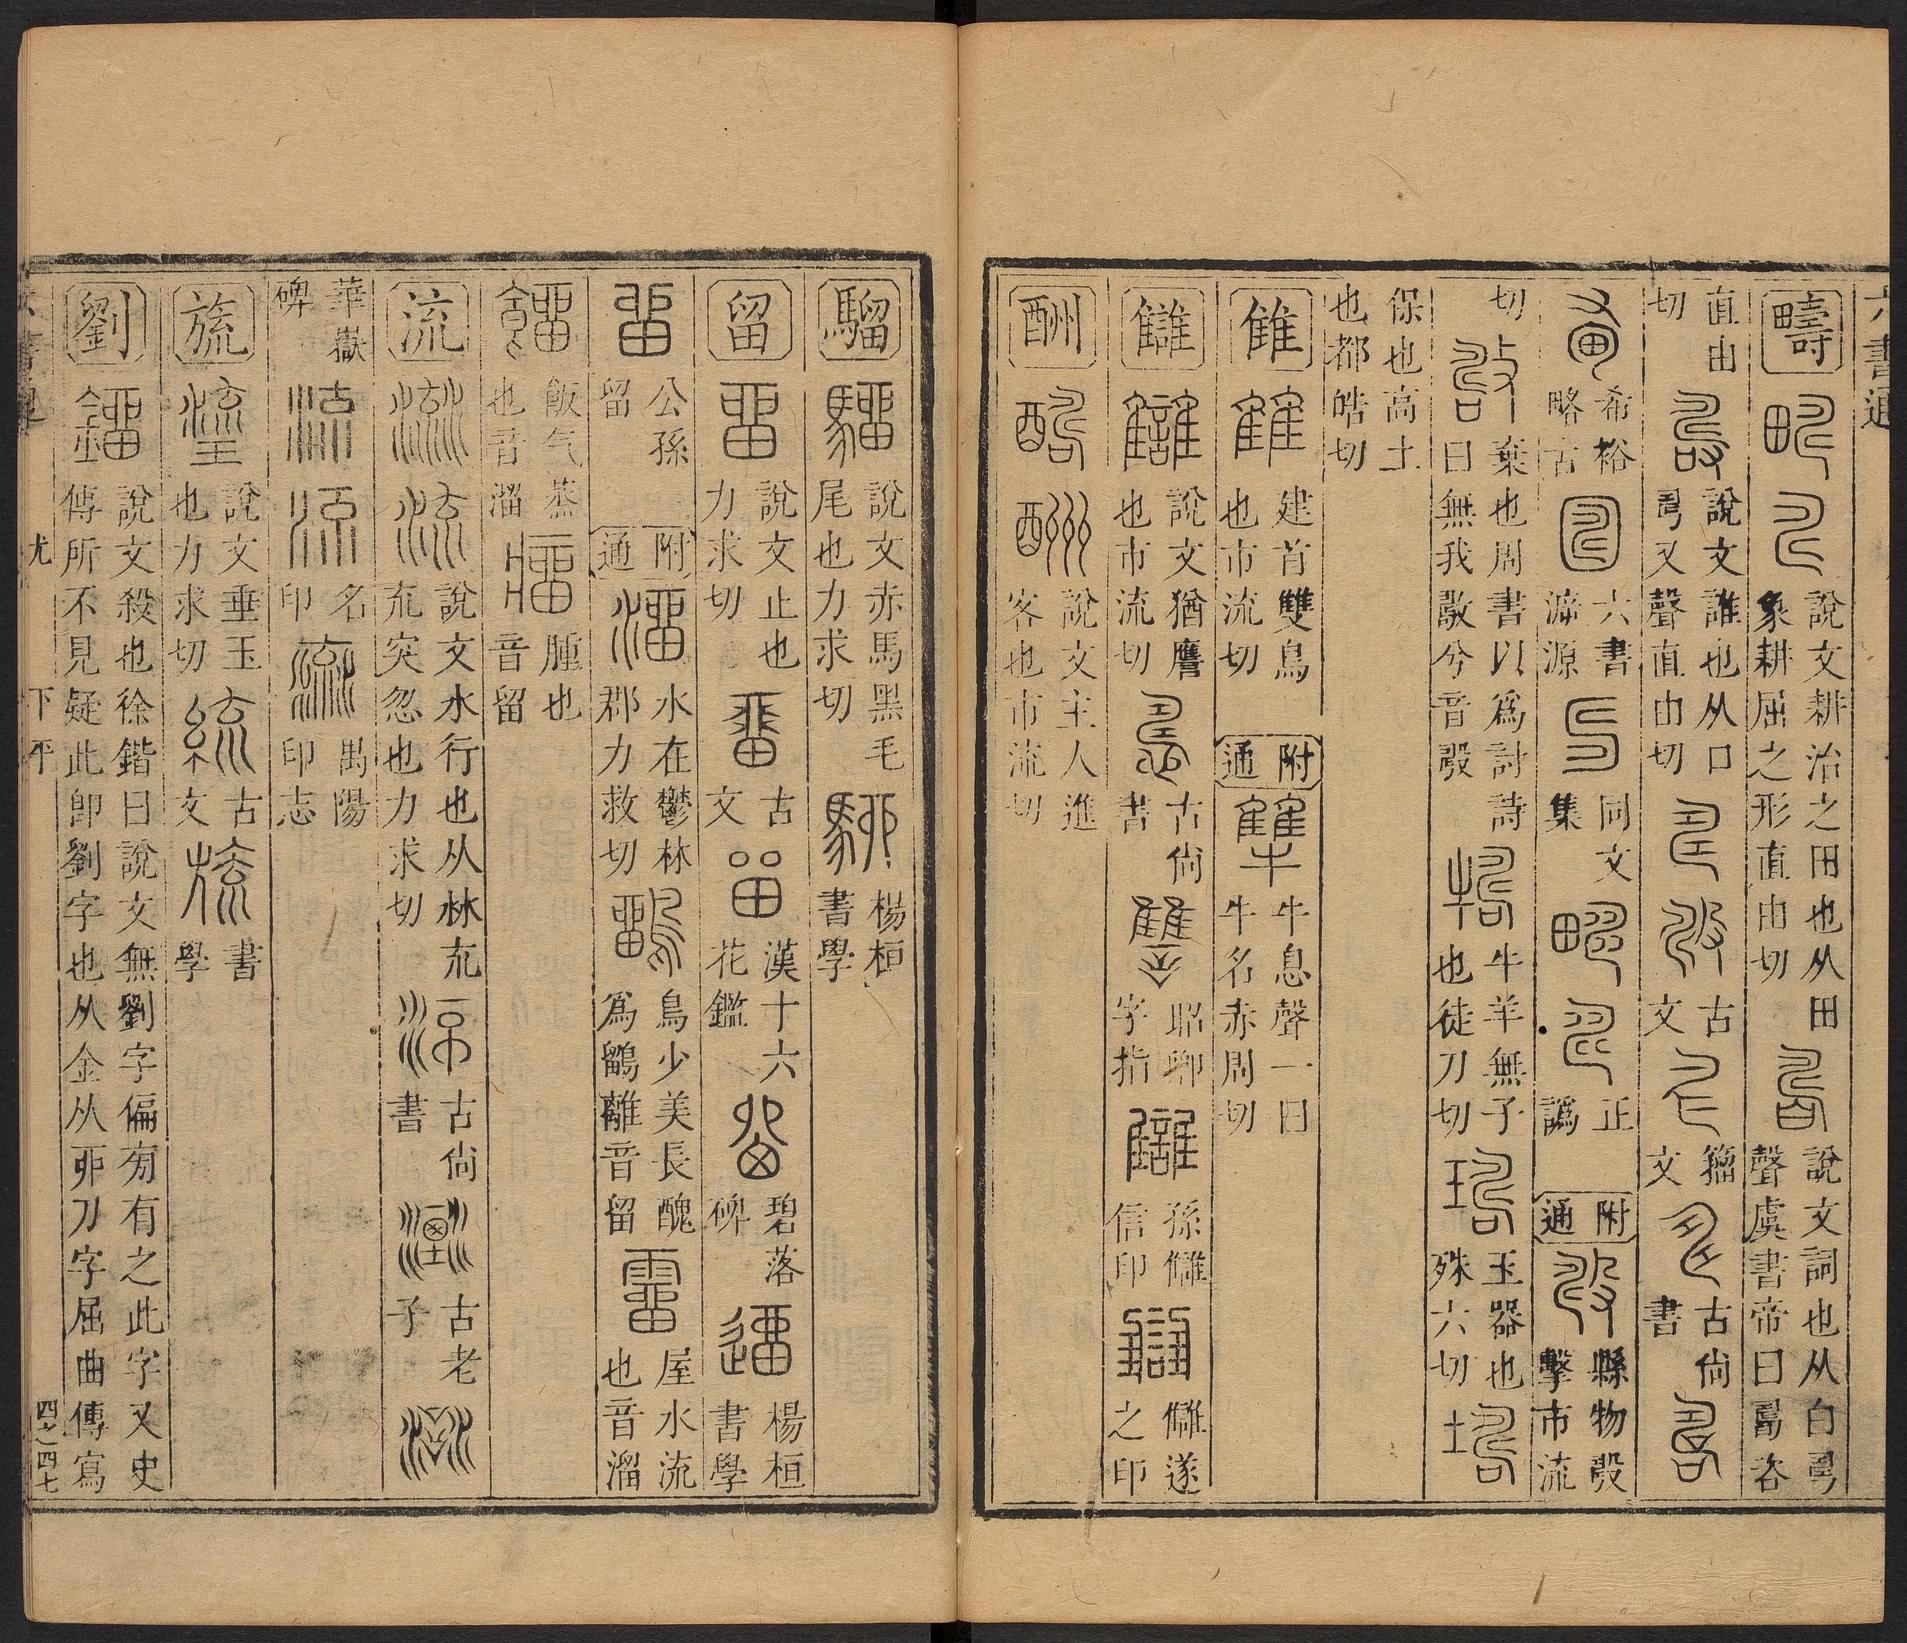 六書通
疇 說文耕治之田也从田象耕屈之形直由切 說文詞也从白𠃬聲虞書帝曰𠷎咨
直由切 說文誰也从口𠃬又聲直由切 古文 籀文 古尚書
希裕略古 六書溯源 同文集 正譌 附通 縣物殸擊市流
切 棄也周書以爲討詩曰無我敽兮音殸 牛羊無子也徒刀切 玉器也殊六切
保也高土也都皓切
雔 建首雙鳥也市流切 附通 牛息聲一曰牛名赤周切
讎 說文猶譍也市流切 古尚書 昭卿字指 孫讎信印 讎遂之印
酬 說文主人進客也市流切
騮 說文赤馬黑毛尾也力求切 楊桓書學
留 說文止也力求切 古文 漢十六花鑑 碧落碑 楊桓書學
公孫留 附通 水在鬱林郡力救切 鳥少美長醜爲鶹離音留 屋水流也音溜
飯气蒸也音溜 腫也音留
流 說文水行也从沝㐬㐬突忽也力求切 古尚書 古老子
華嶽碑 名印 禹陽印 印志
旒 說文垂玉也力求切 古文 書學
劉 說文殺也徐鍇曰說文無劉字偏旁有之此字又史傳所不見疑此卽劉字也从金从丣刀字屈曲傳寫
尤 下平 四之四七